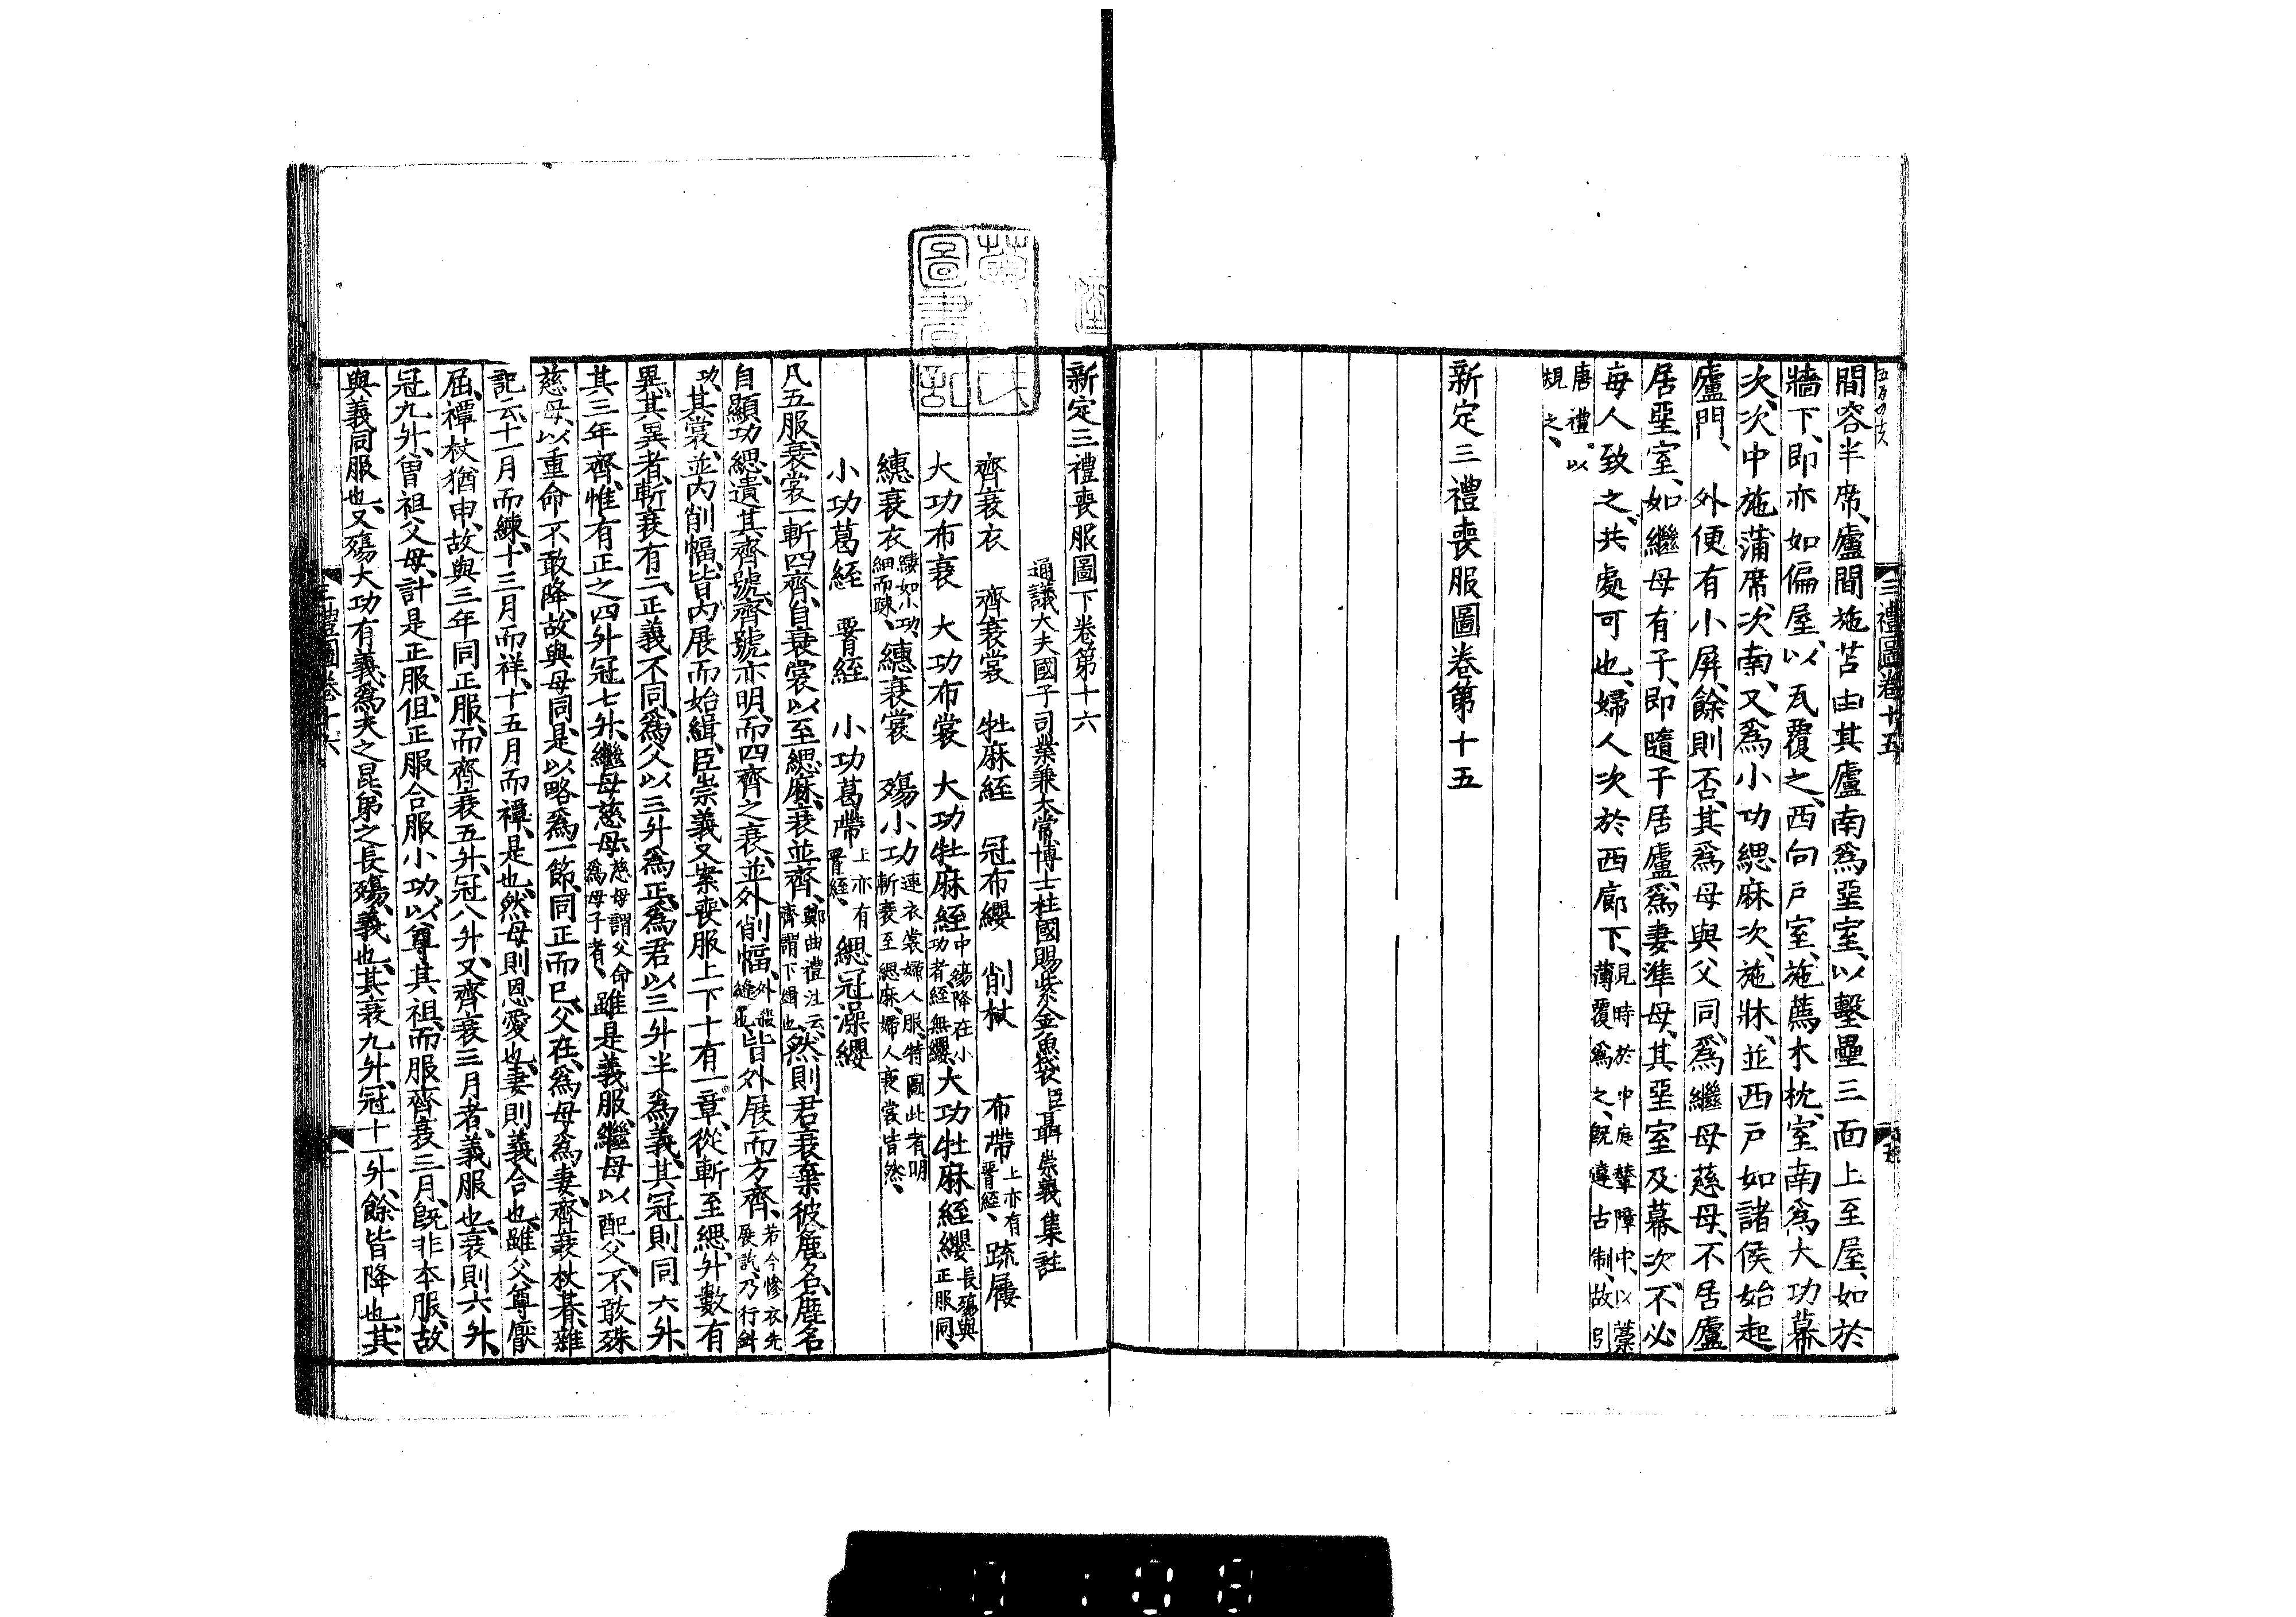 三禮圖卷十五
間容半席、廬間施苫由其廬南爲堊室、以墼壘三面上至屋、如於
牆下、即亦如偏屋、以瓦覆之、西向戶室、施薦木枕、室南爲大功幕
次、次中施蒲席、次南、又爲小功緦麻次、施牀、並西戶如諸侯始起
廬門、外便有小屏、餘則否、其爲母與父同、爲繼母慈母、不居廬
居堊室、如繼母有子、即隨子居廬、爲妻準母、其堊室及幕次、不必
每人致之、共處可也、婦人次於西廊下、見時於中庭輦障中、以藁薄覆爲之、旣違古制、故引
唐禮。以規之、
新定三禮喪服圖卷第十五
新定三禮喪服圖下卷第十六
通議大夫國子司業兼太常博士柱國賜紫金魚袋臣聶崇義集註
齊衰衣 齊衰裳 牡麻絰 冠布纓 削杖 布帶上亦有腰絰、疏屨
大功布衰 大功布裳 大功牡麻絰中殤降在小功者絰無纓、大功牡麻絰纓長殤與正服同、
繐衰衣縷如小功、細而踈、繐衰裳 殤小功連衣裳婦人服、特圖此者、明斬衰至緦麻、婦人衰裳皆然、
小功葛絰 腰絰 小功葛帶上亦有腰絰、緦冠澡纓
凡五服、衰裳一斬四齊、自衰裳以至緦麻、衰並齊、鄭曲禮注云、齊謂下緝也、然則君衰棄彼麄名、麄名
自顯、功緦、遺其齊號、齊號亦明、而四齊之衰、並外削幅、外殺縫也、皆外展而方齊、若今慘衣先展訖乃行針
功、其裳、並內削幅、皆內展而始緝、臣崇義又案、喪服上下十有一章、從斬至緦、升數有
異、其異者、斬衰有二、正義不同、爲父以三升爲正、爲君以三升半爲義、其冠則同六升、
其三年齊、惟有正之四升冠七升、繼母慈母、慈母謂父命爲母子者、雖是義服、繼母以配父、不敢殊
慈母、以重命不敢降、故與母同、是以略爲一節、同正而已、父在、爲母爲妻、齊衰杖朞、雜
記云、十一月而練、十三月而祥、十五月而禫、是也、然母則恩愛也、妻則義合也、雖父尊厭
屈、禫杖猶申、故與三年同正服、而齊衰五升、冠八升、又齊衰三月者、義服也、衰則六升、
冠九升、曾祖父母、計是正服、但正服合服小功、以尊其祖、而服齊衰三月、旣非本服、故
與義同服也、又殤大功有義、爲夫之昆弟之長殤、義也、其衰九升、冠十一升、餘皆降也、其
三禮圖卷十六
一